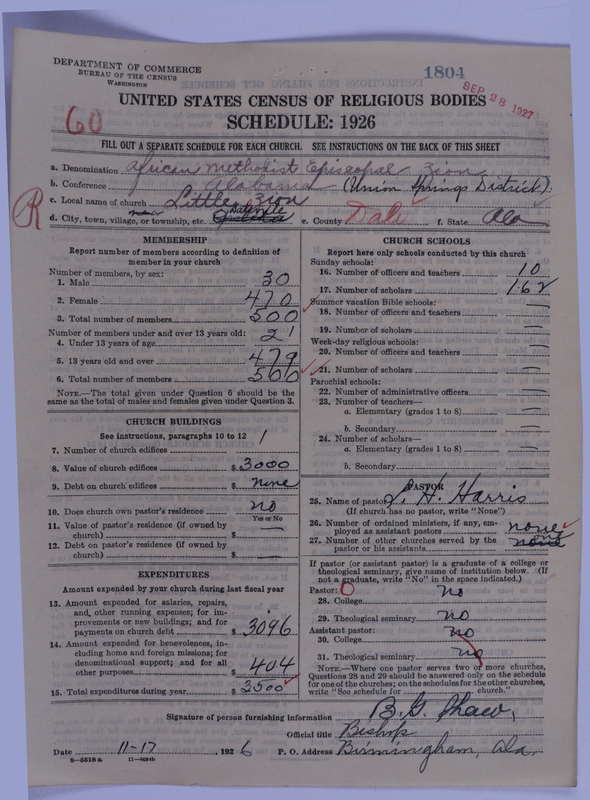 DEPARTMENT OF COMMERCE
BUREAU OF THE CENSUS
WASHINGTON
1804
SEP 28 1927
UNITED STATES CENSUS OF RELIGIOUS BODIES
60
SCHEDULE: 1926
FILL OUT A SEPARATE SCHEDULE FOR EACH CHURCH. SEE INSTRUCTIONS ON THE BACK OF THIS SHEET
a. Denomination African Methodist Episcopal Zion
b. Conference Alabama (Union Springs District)
R
c. Local name of church Little Zion
d. City, town, village, or township, etc. near Daleville e. County Dale f. State Ala
MEMBERSHIP
Report number of members according to definition of
member in your church
Number of members, by sex:
1. Male 30
2. Female 470
3. Total number of members 500
Number of members under and over 13 years old:
4. Under 13 years of age 21
5. 13 years old and over 479
6. Total number of members 500
NOTE.—The total given under Question 6 should be the
same as the total of males and females given under Question 3.
CHURCH BUILDINGS
See instructions, paragraphs 10 to 12
7. Number of church edifices 1
8. Value of church edifices $ 3000
9. Debt on church edifices $ none
10. Does church own pastor's residence? no
Yes or No
11. Value of pastor's residence (if owned by
church) $ —
12. Debt on pastor's residence (if owned by
church) $ —
EXPENDITURES
Amount expended by your church during last fiscal year
13. Amount expended for salaries, repairs,
and other running expenses; for im-
provements or new buildings; and for
payments on church debt $ 3096
14. Amount expended for benevolences, in-
cluding home and foreign missions; for
denominational support; and for all
other purposes $ 404
15. Total expenditures during year $ 3500
CHURCH SCHOOLS
Report here only schools conducted by this church
Sunday schools:
16. Number of officers and teachers 10
17. Number of scholars 162
Summer vacation Bible schools:
18. Number of officers and teachers —
19. Number of scholars —
Week-day religious schools:
20. Number of officers and teachers —
21. Number of scholars —
Parochial schools:
22. Number of administrative officers —
23. Number of teachers—
a. Elementary (grades 1 to 8) —
b. Secondary —
24. Number of scholars—
a. Elementary (grades 1 to 8) —
b. Secondary —
PASTOR
25. Name of pastor H. Harris
(If church has no pastor, write "None")
26. Number of ordained ministers, if any, em-
ployed as assistant pastors none
27. Number of other churches served by the
pastor or his assistants none
If pastor (or assistant pastor) is a graduate of a college or
theological seminary, give name of institution below. (If
not a graduate, write "No" in the space indicated.)
Pastor:
28. College no
29. Theological seminary no
Assistant pastor:
30. College no
31. Theological seminary no
NOTE.—Where one pastor serves two or more churches,
Questions 28 and 29 should be answered only on the schedule
for one of the churches; on the schedules for the other churches,
write "See schedule for church."
Signature of person furnishing information B. G. Shaw,
Official title Bishop
Date 11-17, 1926 P. O. Address Birmingham, Ala.
8—5518a 11—9054b